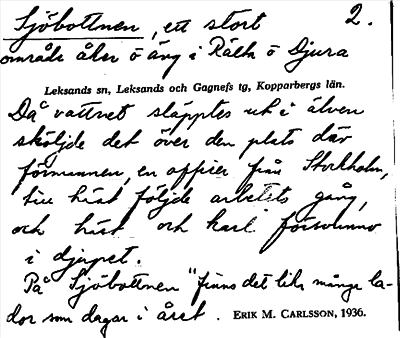 Sjöbottnen, ett stort 2.
område åker o äng i Rälta o Djura
Leksands sn, Leksands och Gagnefs tg, Kopparbergs län.
Då vattnet släpptes ut i älven
sköljde det över den plats där
förmannen, en officer från Stockholm,
till häst följde arbetets gång,
och häst och karl försvunno
i djupet.
På Sjöbottnen "finns det lika många la-
dor som dagar i året.
ERIK M. CARLSSON, 1936.